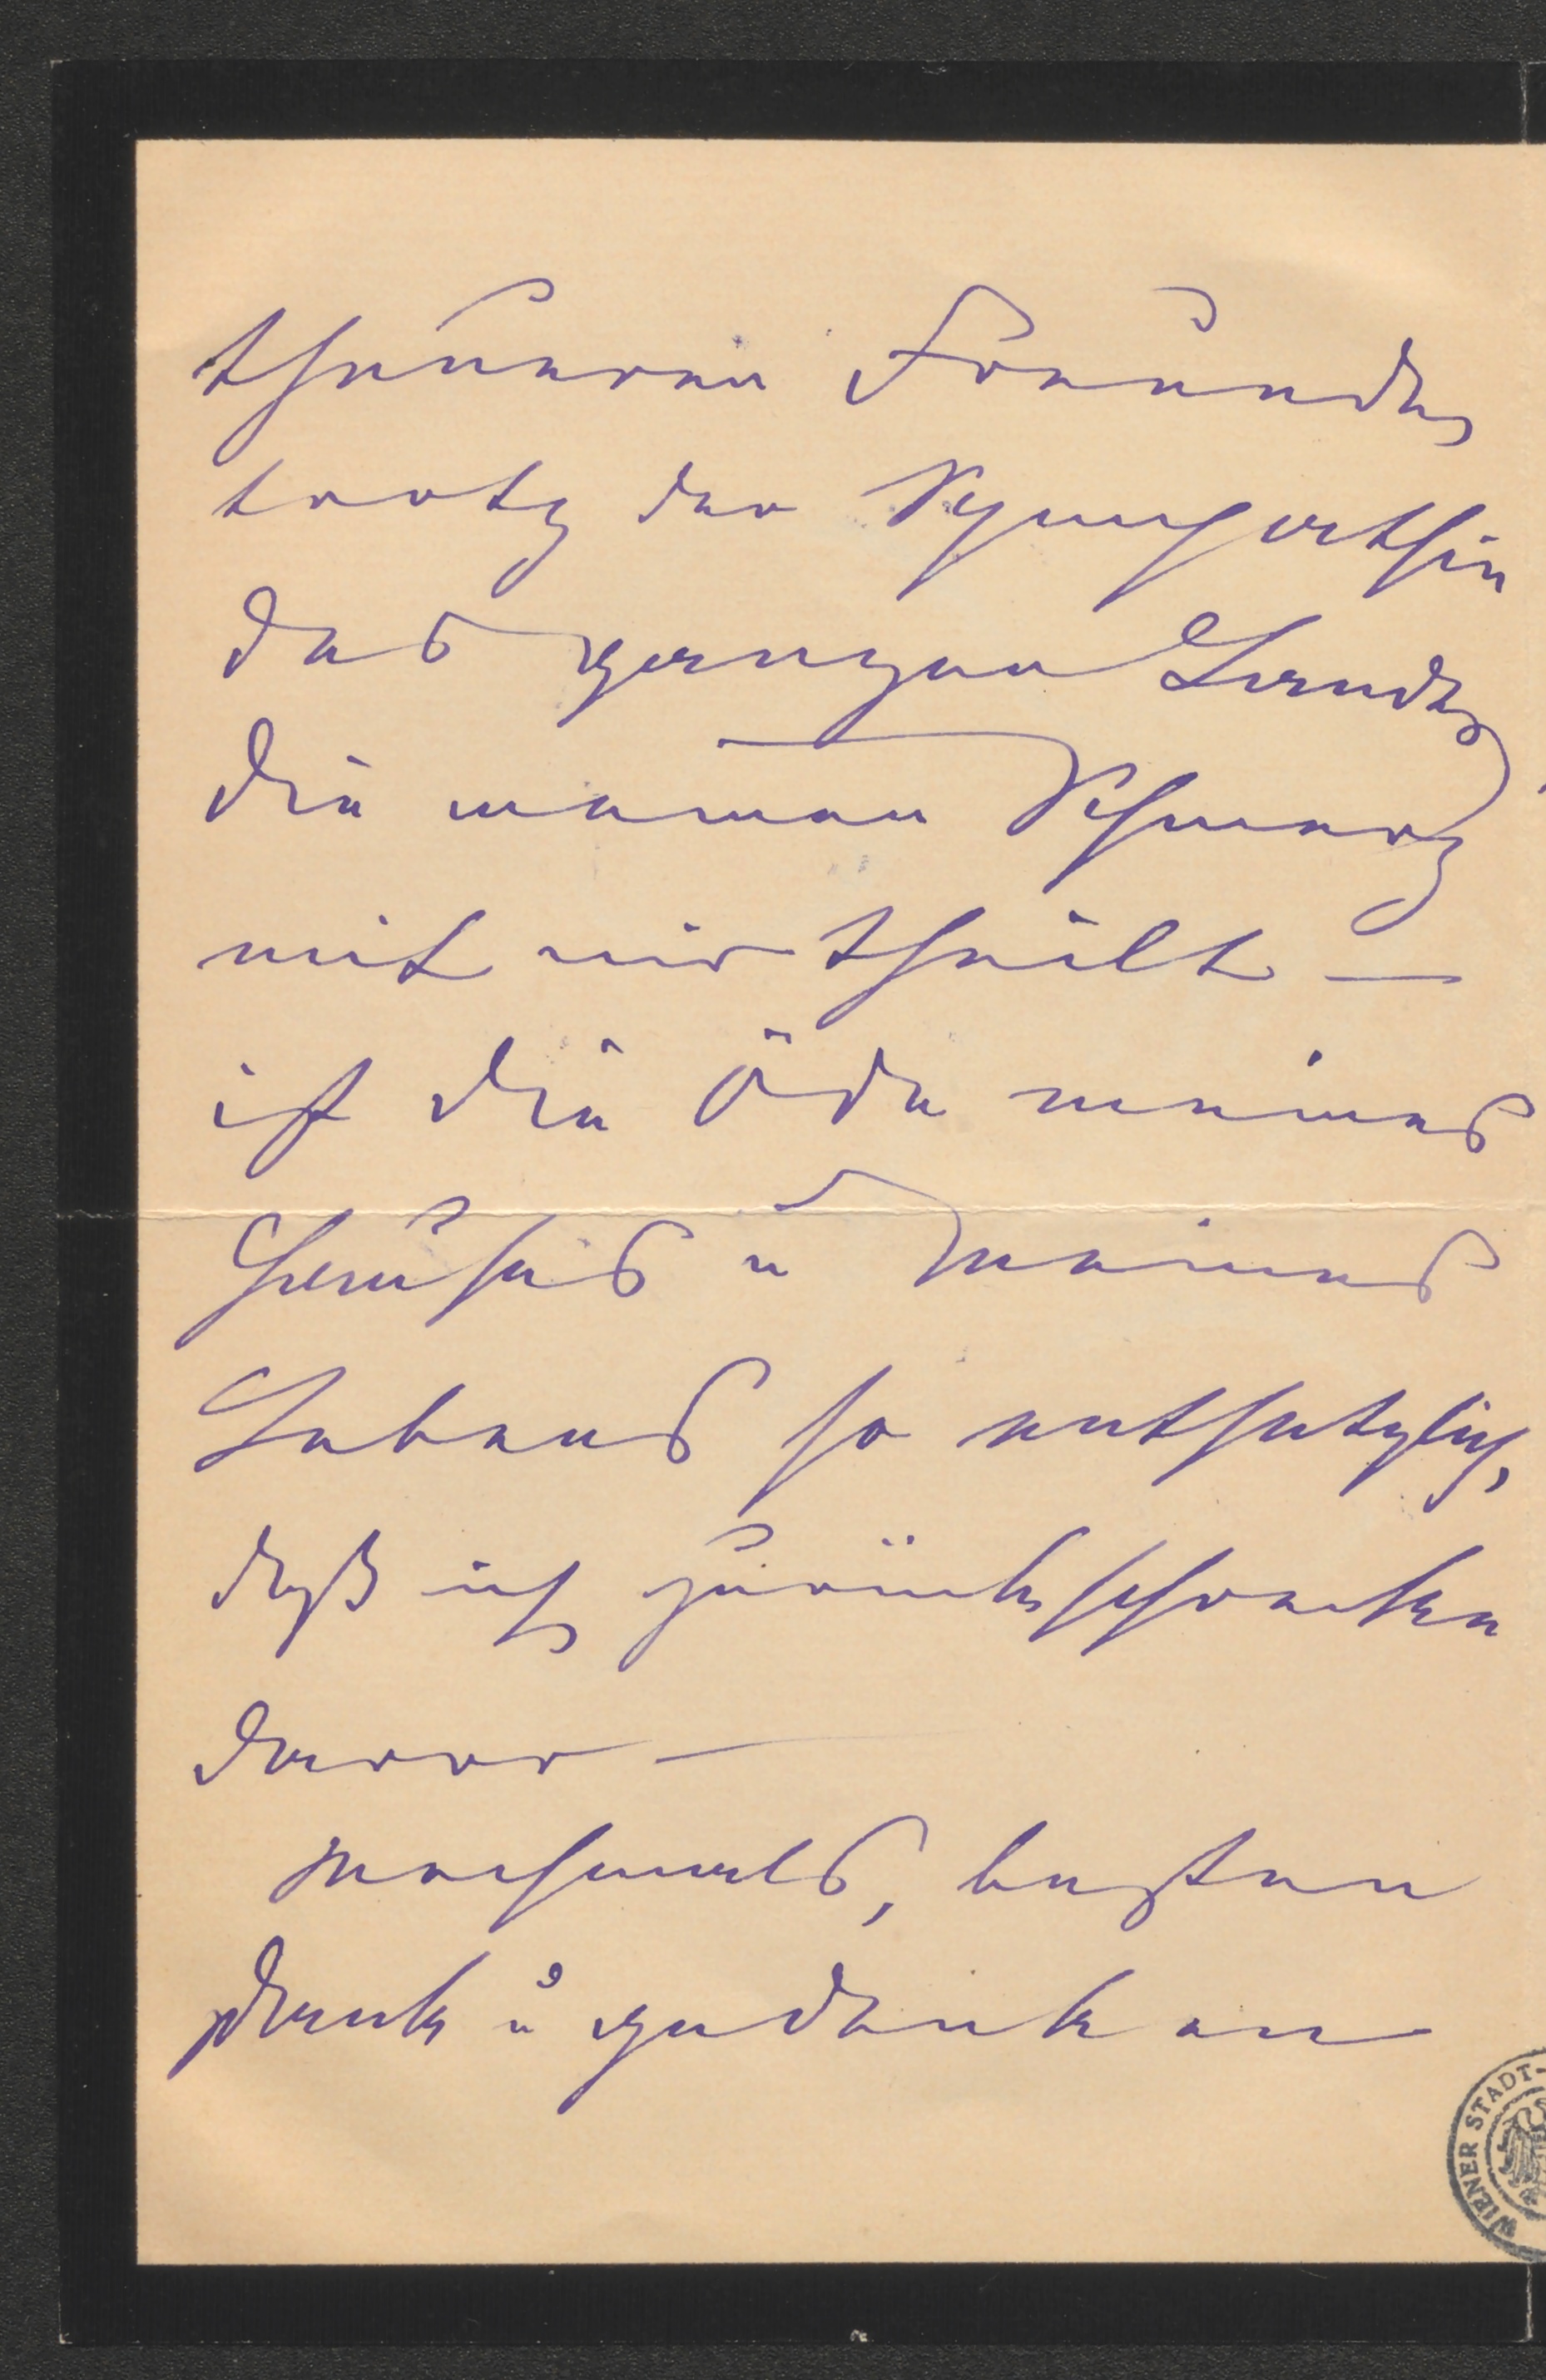 theueren Freunde,
trotz der Sympathie
des ganzen Landes
die meinen Schmerz
mit mir theilt —
ist die Öde meines
Hauses u meines
Lebens so entsetzlich,
daß ich zurückschrecke
davor —
Nochmals, besten
Dank u gedenken
WIENER STADT-